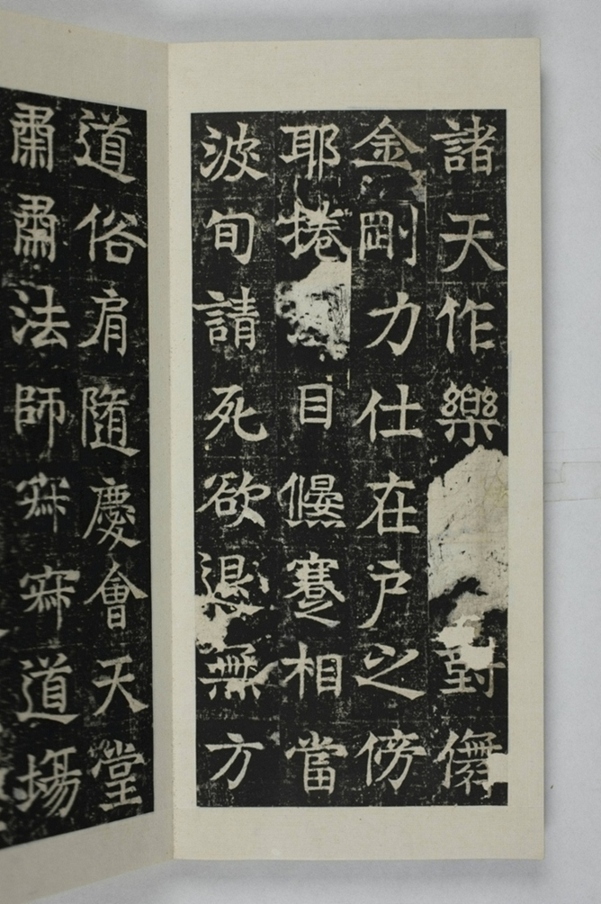 諸天作樂對儛
金剛力仕在户之傍
耶捲目相當
波旬請死欲退無方
道俗肩随慶會天堂
肅肅法師寂寂道塲